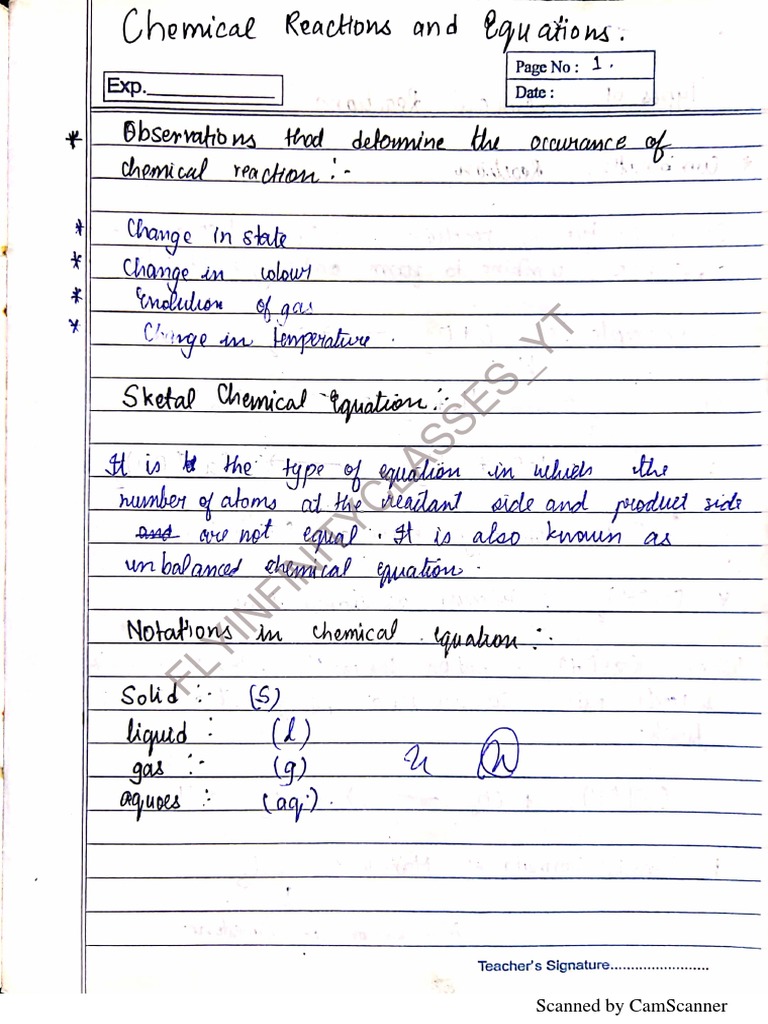 Chemical Reactions and Equations.
Page No : 1.
Exp.
Date :
* Observations that determine the occurance of
chemical reaction :-
* Change in state
* Change in colour
* Evolution of gas
* Change in temperature .
Sketal Chemical Equation :-
It is the type of equation in which the
number of atoms at the reactant side and product side
and are not equal . It is also known as
unbalanced chemical equation .
Notations in chemical equation :-
Solid :- (S)
liquid : (l)
gas :- (g)
aquoes :- (aq.) .
FLYINFINITYCLASSES_YT
Teacher's Signature........................
Scanned by CamScanner